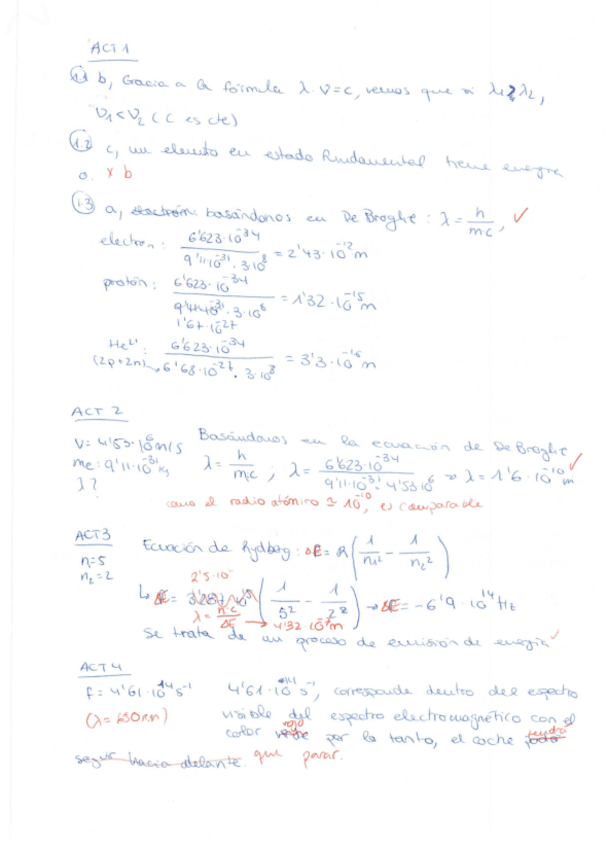 ACT 1
1.1 b, Gracias a la fórmula λ·ν=c, vemos que si λ1>λ2,
ν1<ν2 (c es cte)
1.2 c, un elemento en estado fundamental tiene energía
0. x b
1.3 a, electrón: basándonos en De Broglie: λ = h/mc, ✓
electron: 6'623·10^-34 / 9'11·10^-31 · 3·10^8 = 2'43·10^-12 m
protón: 6'623·10^-34 / 9'1140^-31 · 3·10^8 = 1'32·10^-15 m
1'67·10^-27
He2+: 6'623·10^-34 / 6'68·10^-27 · 3·10^8 = 3'3·10^-16 m
(2p+2n)
ACT 2
V= 4'53·10^6 m/s Basándonos en la ecuación de De Broglie ✓
me: 9'11·10^-31 kg λ = h/mc ; λ = 6'623·10^-34 / 9'11·10^-31 · 4'53·10^6 → λ = 1'6·10^-10 m
λ?
como el radio atómico ≃ 10^-10, es comparable
ACT3 Ecuación de Rydberg: ΔE = R(1/n1² − 1/n2²)
n=5
n2=2
2'5·10^-
↳ ΔE = (1/5² − 1/2²) → ΔE = −6'9·10^14 Hz
λ = h·c/ΔE → 4'32·10^-7 m
Se trata de un proceso de emisión de energía ✓
ACT 4
f = 4'61·10^14 s^-1 4'61·10^14 s^-1, corresponde dentro del espectro
(λ = 650nm) visible del espectro electromagnético con el
rojo tendrá
color verde por lo tanto, el coche podrá
seguir hacia delante. que parar.